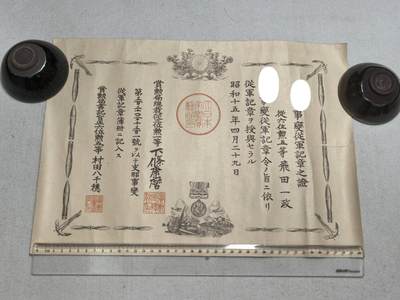 事變從軍記章之證
從六位勲五等 飛田一政
事變從軍記章令ノ旨ニ依リ
從軍記章ヲ授與セラル
昭和十五年四月二十九日
賞勲局總裁從四位勲二等 下條康麿
第 号ヲ以テ支那事變
從軍記章簿冊ニ記入ス
賞勲局書記官正六位勲五等 村田八千穂